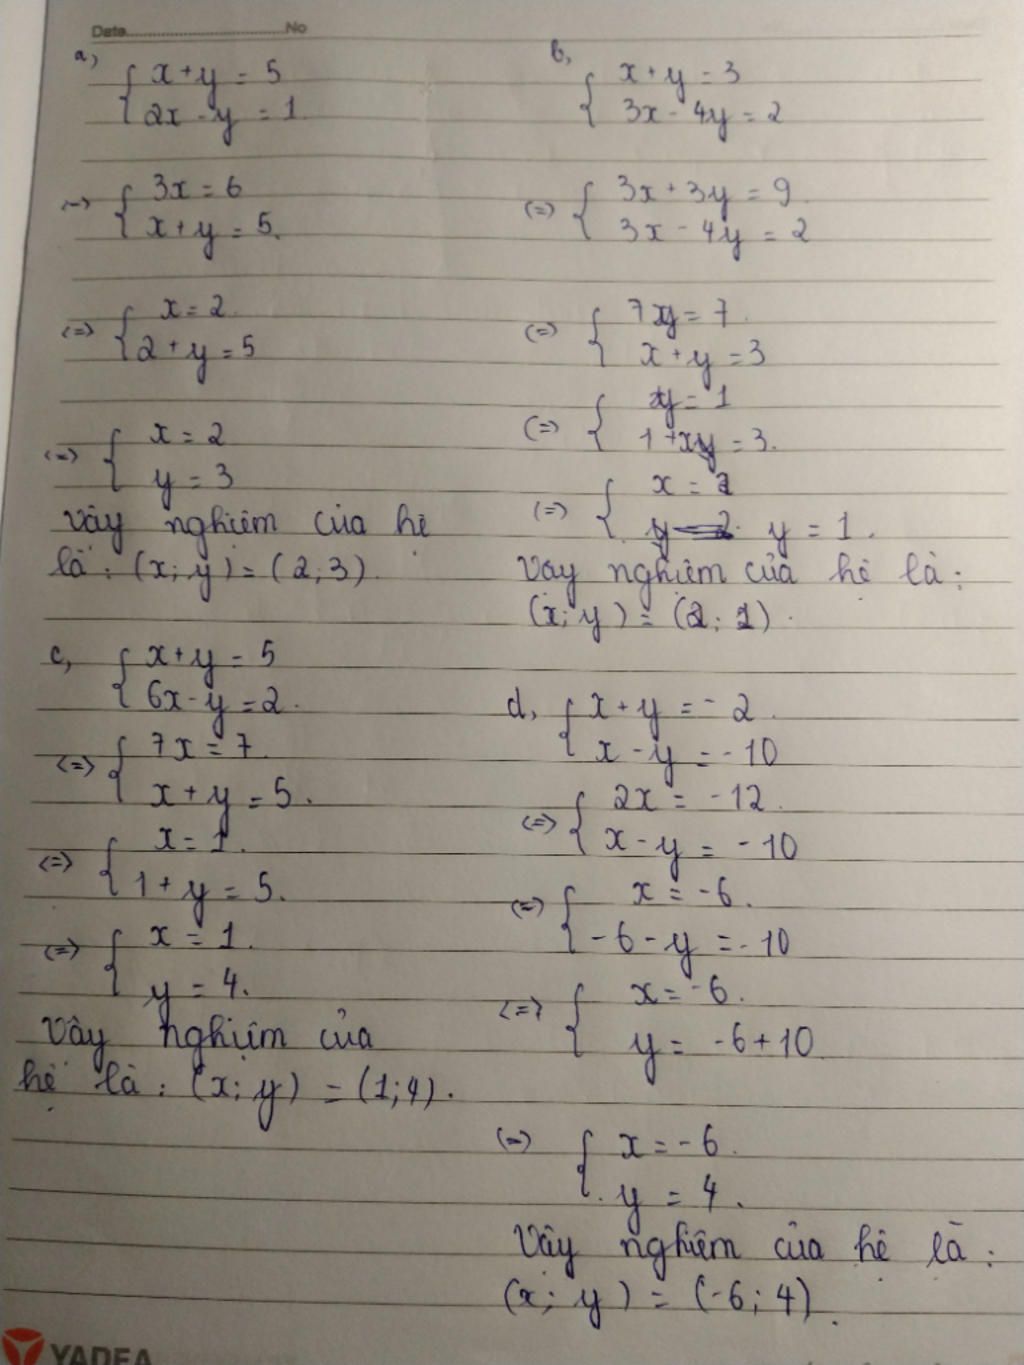 Date No
a,
{ x + y = 5
2x - y = 1
<=> { 3x = 6
x + y = 5.
<=> { x = 2
2 + y = 5
<=> { x = 2
y = 3
Vậy nghiệm của hệ
là : (x; y) = (2; 3)
b,
{ x + y = 3
3x - 4y = 2
(=) { 3x + 3y = 9
3x - 4y = 2
(=) { 7y = 7
x + y = 3
(=) { y = 1
1 + x = 3.
(=) { x = 2
y = 1.
Vậy nghiệm của hệ là :
(x; y) = (2; 1).
c,
{ x + y = 5
6x - y = 2.
<=> { 7x = 7
x + y = 5.
<=> { x = 1.
1 + y = 5.
<=> { x = 1.
y = 4.
Vậy nghiệm của
hệ là : (x; y) = (1; 4).
d, { x + y = -2
x - y = -10
<=> { 2x = -12.
x - y = -10
<=> { x = -6.
-6 - y = -10
<=> { x = -6.
y = -6 + 10
(=) { x = -6.
y = 4.
Vậy nghiệm của hệ là :
(x; y) = (-6; 4).
YADEA